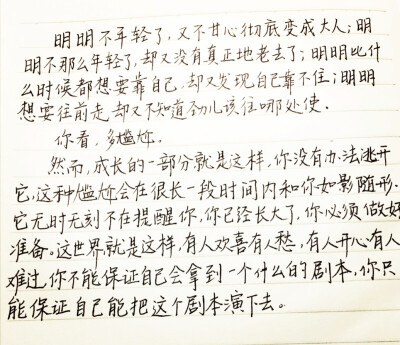 明明不年轻了,又不甘心彻底变成大人;明
明不那么年轻了,却又没有真正地老去了;明明比什
么时候都想要靠自己,却又发现自己靠不住;明明
想要往前走却又不知道劲儿该往哪处使。
你看,多尴尬。
然而,成长的一部分就是这样,你没有办法逃开
它,这种尴尬会在很长一段时间内和你如影随形.
它无时无刻不在提醒你,你已经长大了,你必须做好
准备。这世界就是这样,有人欢喜有人愁,有人开心有人
难过,你不能保证自己会拿到一个什么的剧本,你只
能保证自己能把这个剧本演下去。